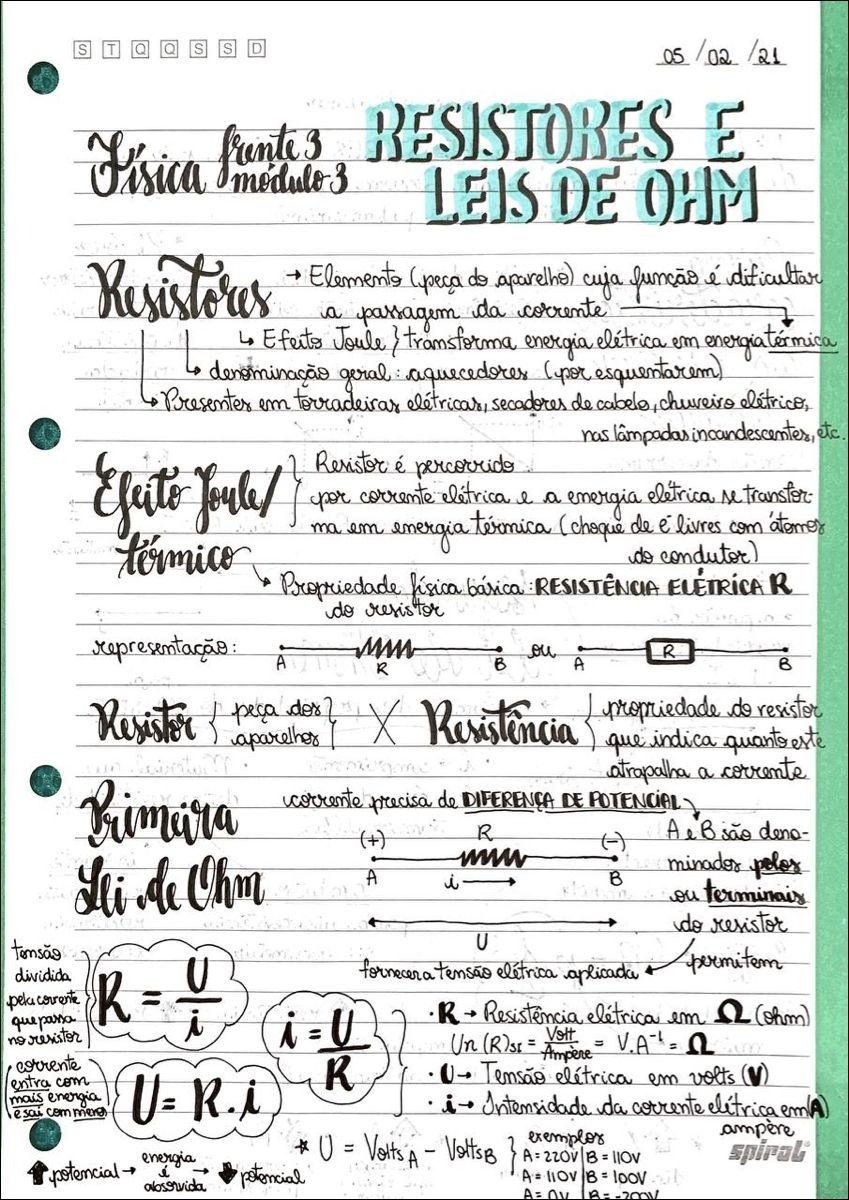 S T Q Q S S D
05/02/21
Física frente 3 módulo 3
RESISTORES E
LEIS DE OHM
Resistores → Elemento (peça do aparelho) cuja função é dificultar
a passagem da corrente
↳ Efeito Joule } transforma energia elétrica em energia térmica
↳ denominação geral: aquecedores (por esquentarem)
↳ Presentes em torradeiras elétricas, secadores de cabelo, chuveiro elétrico,
nas lâmpadas incandescentes, etc.
Efeito Joule/
térmico
Resistor é percorrido
por corrente elétrica e a energia elétrica se transfor-
ma em energia térmica (choque de e⁻ livres com átomos
do condutor)
↳ Propriedade física básica: RESISTÊNCIA ELÉTRICA R
do resistor
representação: A R B ou A R B
Resistor { peça dos
aparelhos }
X
Resistência { propriedade do resistor
que indica quanto este
atrapalha a corrente
Primeira
Lei de Ohm
corrente precisa de DIFERENÇA DE POTENCIAL
(+) R (-)
A i → B
U
A e B são deno-
minados polos
ou terminais
do resistor
permitem
fornecera tensão elétrica aplicada
tensão
dividida
pela corrente
que passa
no resistor
R = U/i
i = U/R
corrente
entra com
mais energia
e sai com menos
U = R.i
• R → Resistência elétrica em Ω (ohm)
Un (R)SI = Volt/Ampère = V.A⁻¹ = Ω
• U → Tensão elétrica em volts (V)
• i → Intensidade da corrente elétrica em (A)
ampère
* U = Volts A - Volts B } exemplos
A = 220V | B = 110V
A = 110V | B = 100V
A = 0V | B = -200V
⬆ potencial → energia é absorvida → ⬇ potencial
spiral